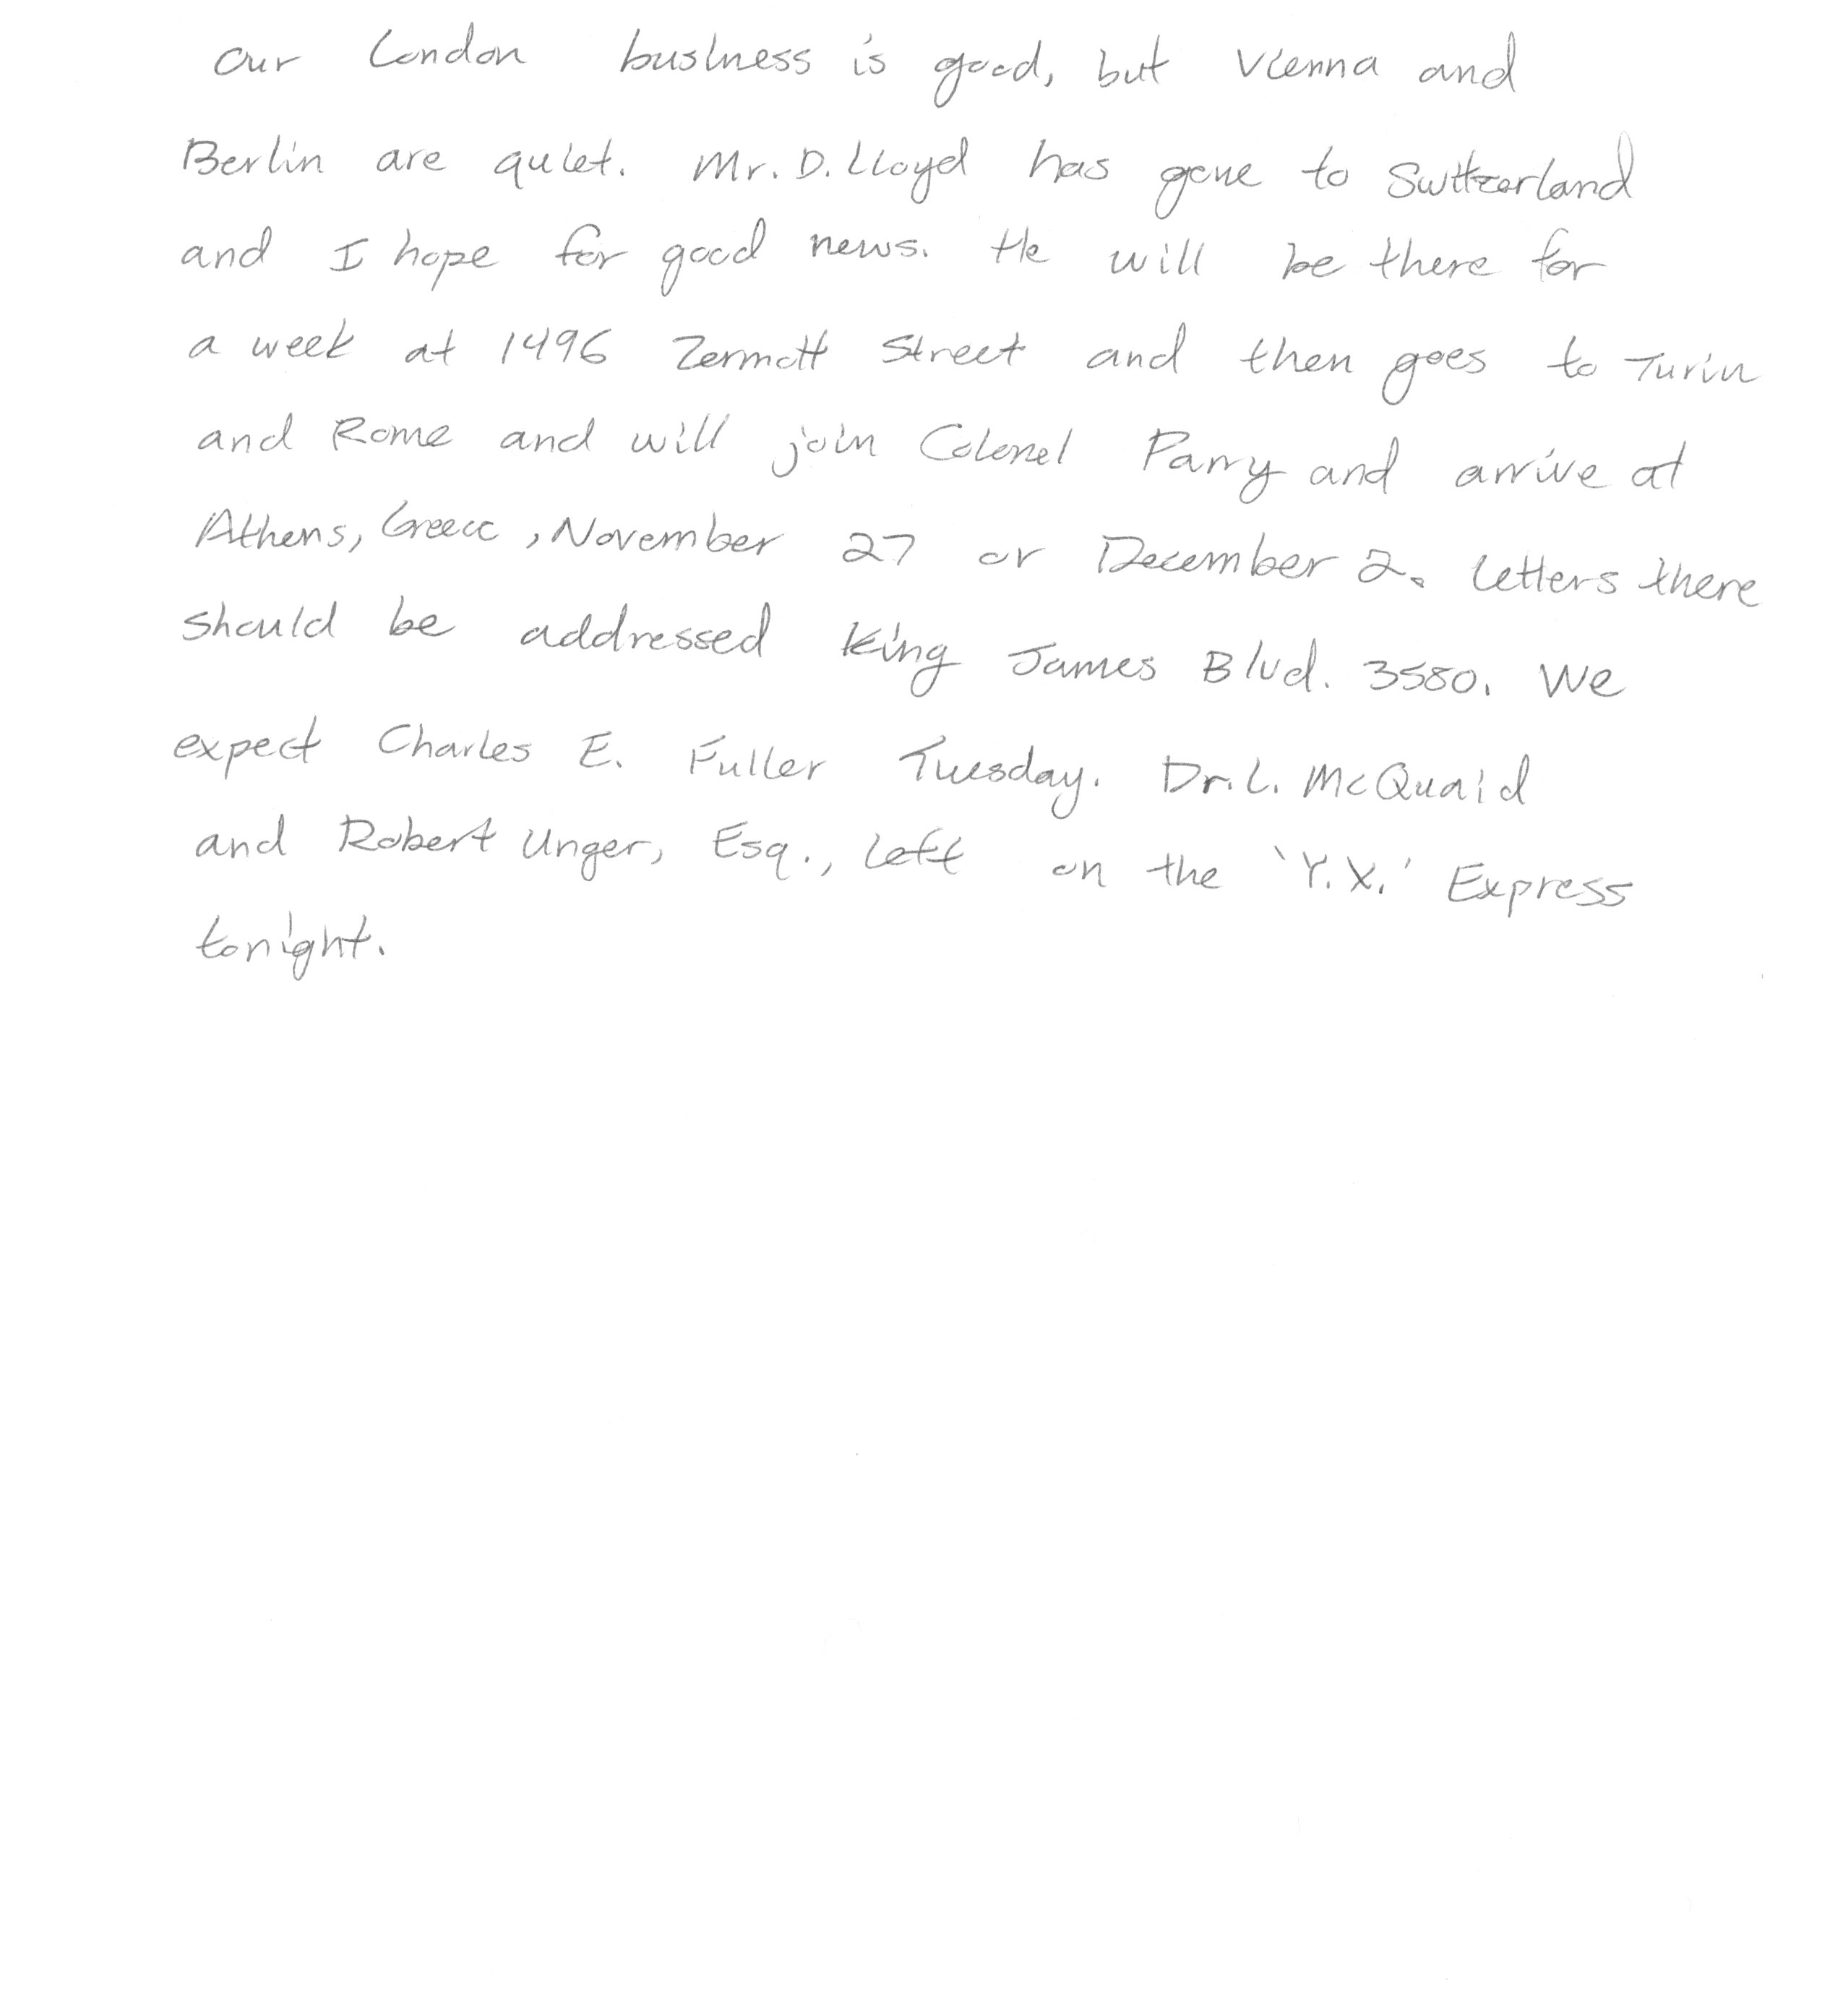 Our London business is good, but Vienna and
Berlin are quiet. Mr. D. Lloyd has gone to Switzerland
and I hope for good news. He will be there for
a week at 1496 Zermott Street and then goes to Turin
and Rome and will join Colonel Parry and arrive at
Athens, Greece, November 27 or December 2. Letters there
should be addressed King James Blvd. 3580. We
expect Charles E. Fuller Tuesday. Dr. L. McQuaid
and Robert Unger, Esq., left on the 'Y.X.' Express
tonight.